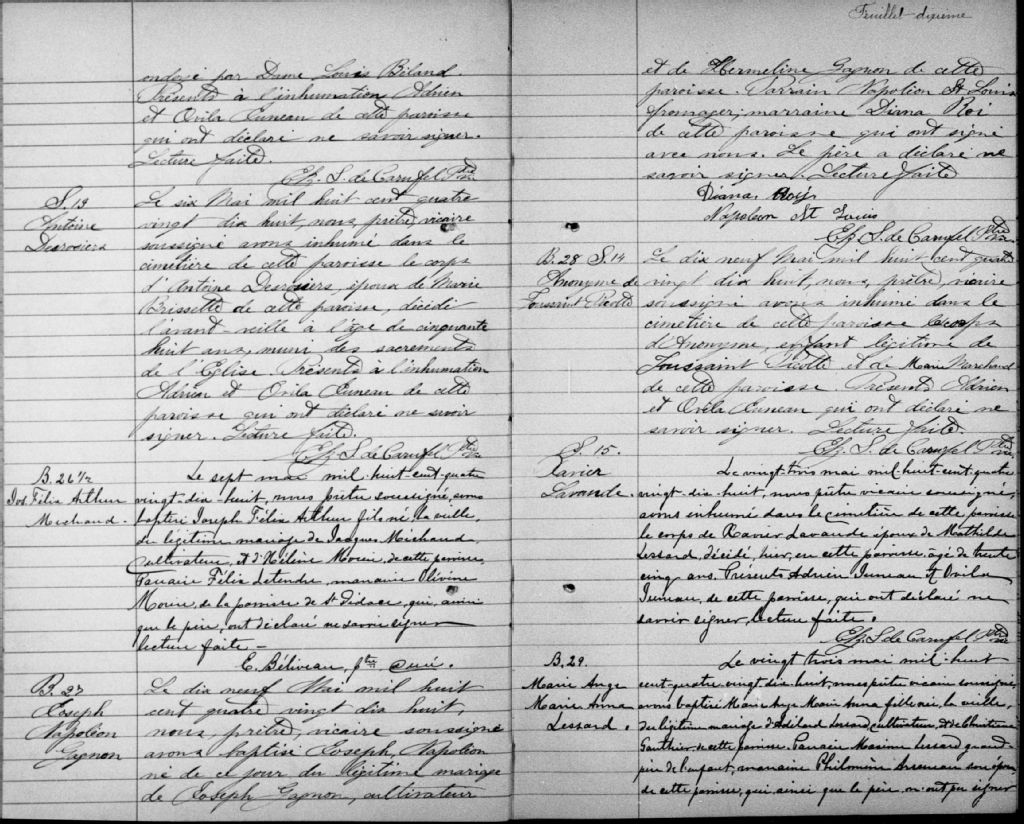 ondoyé par Dame Louis Béland.
Présents à l'inhumation Adrien
et Ovila Juneau de cette paroisse
qui ont déclaré ne savoir signer.
Lecture faite.
S. de Carufel Ptre
S. 13
Antoine
Desrosiers
Le six Mai mil huit cent quatre
vingt dix huit, nous, prêtre, vicaire
soussigné avons inhumé dans le
cimetière de cette paroisse le corps
d'Antoine Desrosiers, époux de Marie
Brissette de cette paroisse, décédé
l'avant-veille à l'âge de cinquante
huit ans, muni des sacrements
de l'Eglise. Présents à l'inhumation
Adrien et Ovila Juneau de cette
paroisse qui ont déclaré ne savoir
signer. Lecture faite.
S. de Carufel Ptre
B. 26 1/2
Jos. Félix Arthur
Michaud.
Le sept mai mil-huit-cent-quatre
vingt-dix-huit, nous prêtre soussigné, avons
baptisé Joseph Félix Arthur fils né la veille
du légitime mariage de Jacques Michaud
cultivateur, et d'Hélène de cette paroisse,
Parrain Félix Letendre, marraine Olivine
de la paroisse de St Didace, qui, ainsi
que le père, ont déclaré ne savoir signer
lecture faite -
E. Béliveau, Ptre curé.
B. 27
Joseph
Napoléon
Gagnon
Le dix neuf Mai mil huit
cent quatre vingt dix huit,
nous, prêtre, vicaire soussigné
avons baptisé Joseph, Napoléon
né de ce jour du légitime mariage
de Joseph Gagnon, cultivateur
Feuillet dixième
et de Hermeline Gagnon de cette
paroisse. Parrain Napoléon St Louis
fromager; marraine Diana Roi
de cette paroisse qui ont signé
avec nous. Le père a déclaré ne
savoir signer. Lecture faite
Diana Roy
Napoleon St Louis
S. de Carufel Ptre
B. 28 S. 14
Anonyme de
Toussaint Picotte
Le dix neuf Mai mil huit cent quatre
vingt dix huit, nous, prêtre, vicaire
soussigné avons inhumé dans le
cimetière de cette paroisse le corps
d'Anonyme, enfant légitime de
Toussaint Picotte et de Marie Marchand
de cette paroisse. Présents Adrien
et Ovila Juneau qui ont déclaré ne
savoir signer. Lecture faite.
S. de Carufel Ptre
S. 15.
Xavier
Lavande.
Le vingt-trois mai mil-huit-cent-quatre
vingt-dix-huit, nous prêtre vicaire soussigné,
avons inhumé dans le cimetière de cette paroisse
le corps de Xavier Lavande époux de Mathilde
Lessard, décédé, hier, en cette paroisse, âgé de trente
cinq ans. Présents Adrien Juneau et Ovila
Juneau, de cette paroisse, qui ont déclaré ne
savoir signer, lecture faite.
S. de Carufel Ptre
B. 29.
Marie Ange
Marie Anna
Lessard.
Le vingt trois mai mil-huit
cent-quatre vingt-dix-huit, nous prêtre vicaire soussigné,
avons baptisé Marie Ange Marie Anna fille née, la veille,
du légitime mariage d'Adélard Lessard, cultivateur, et de
Gauthier de cette paroisse. Parrain Maxime Lessard grand-
père de l'enfant, marraine Philomène Arseneau son épouse
de cette paroisse, qui ainsi que le père, n'ont pu signer